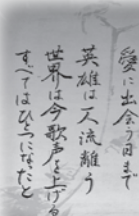 愛に出会う日まで
英雄は人流離う
世界は今歌声を上げる
すべてはひとつになれたと